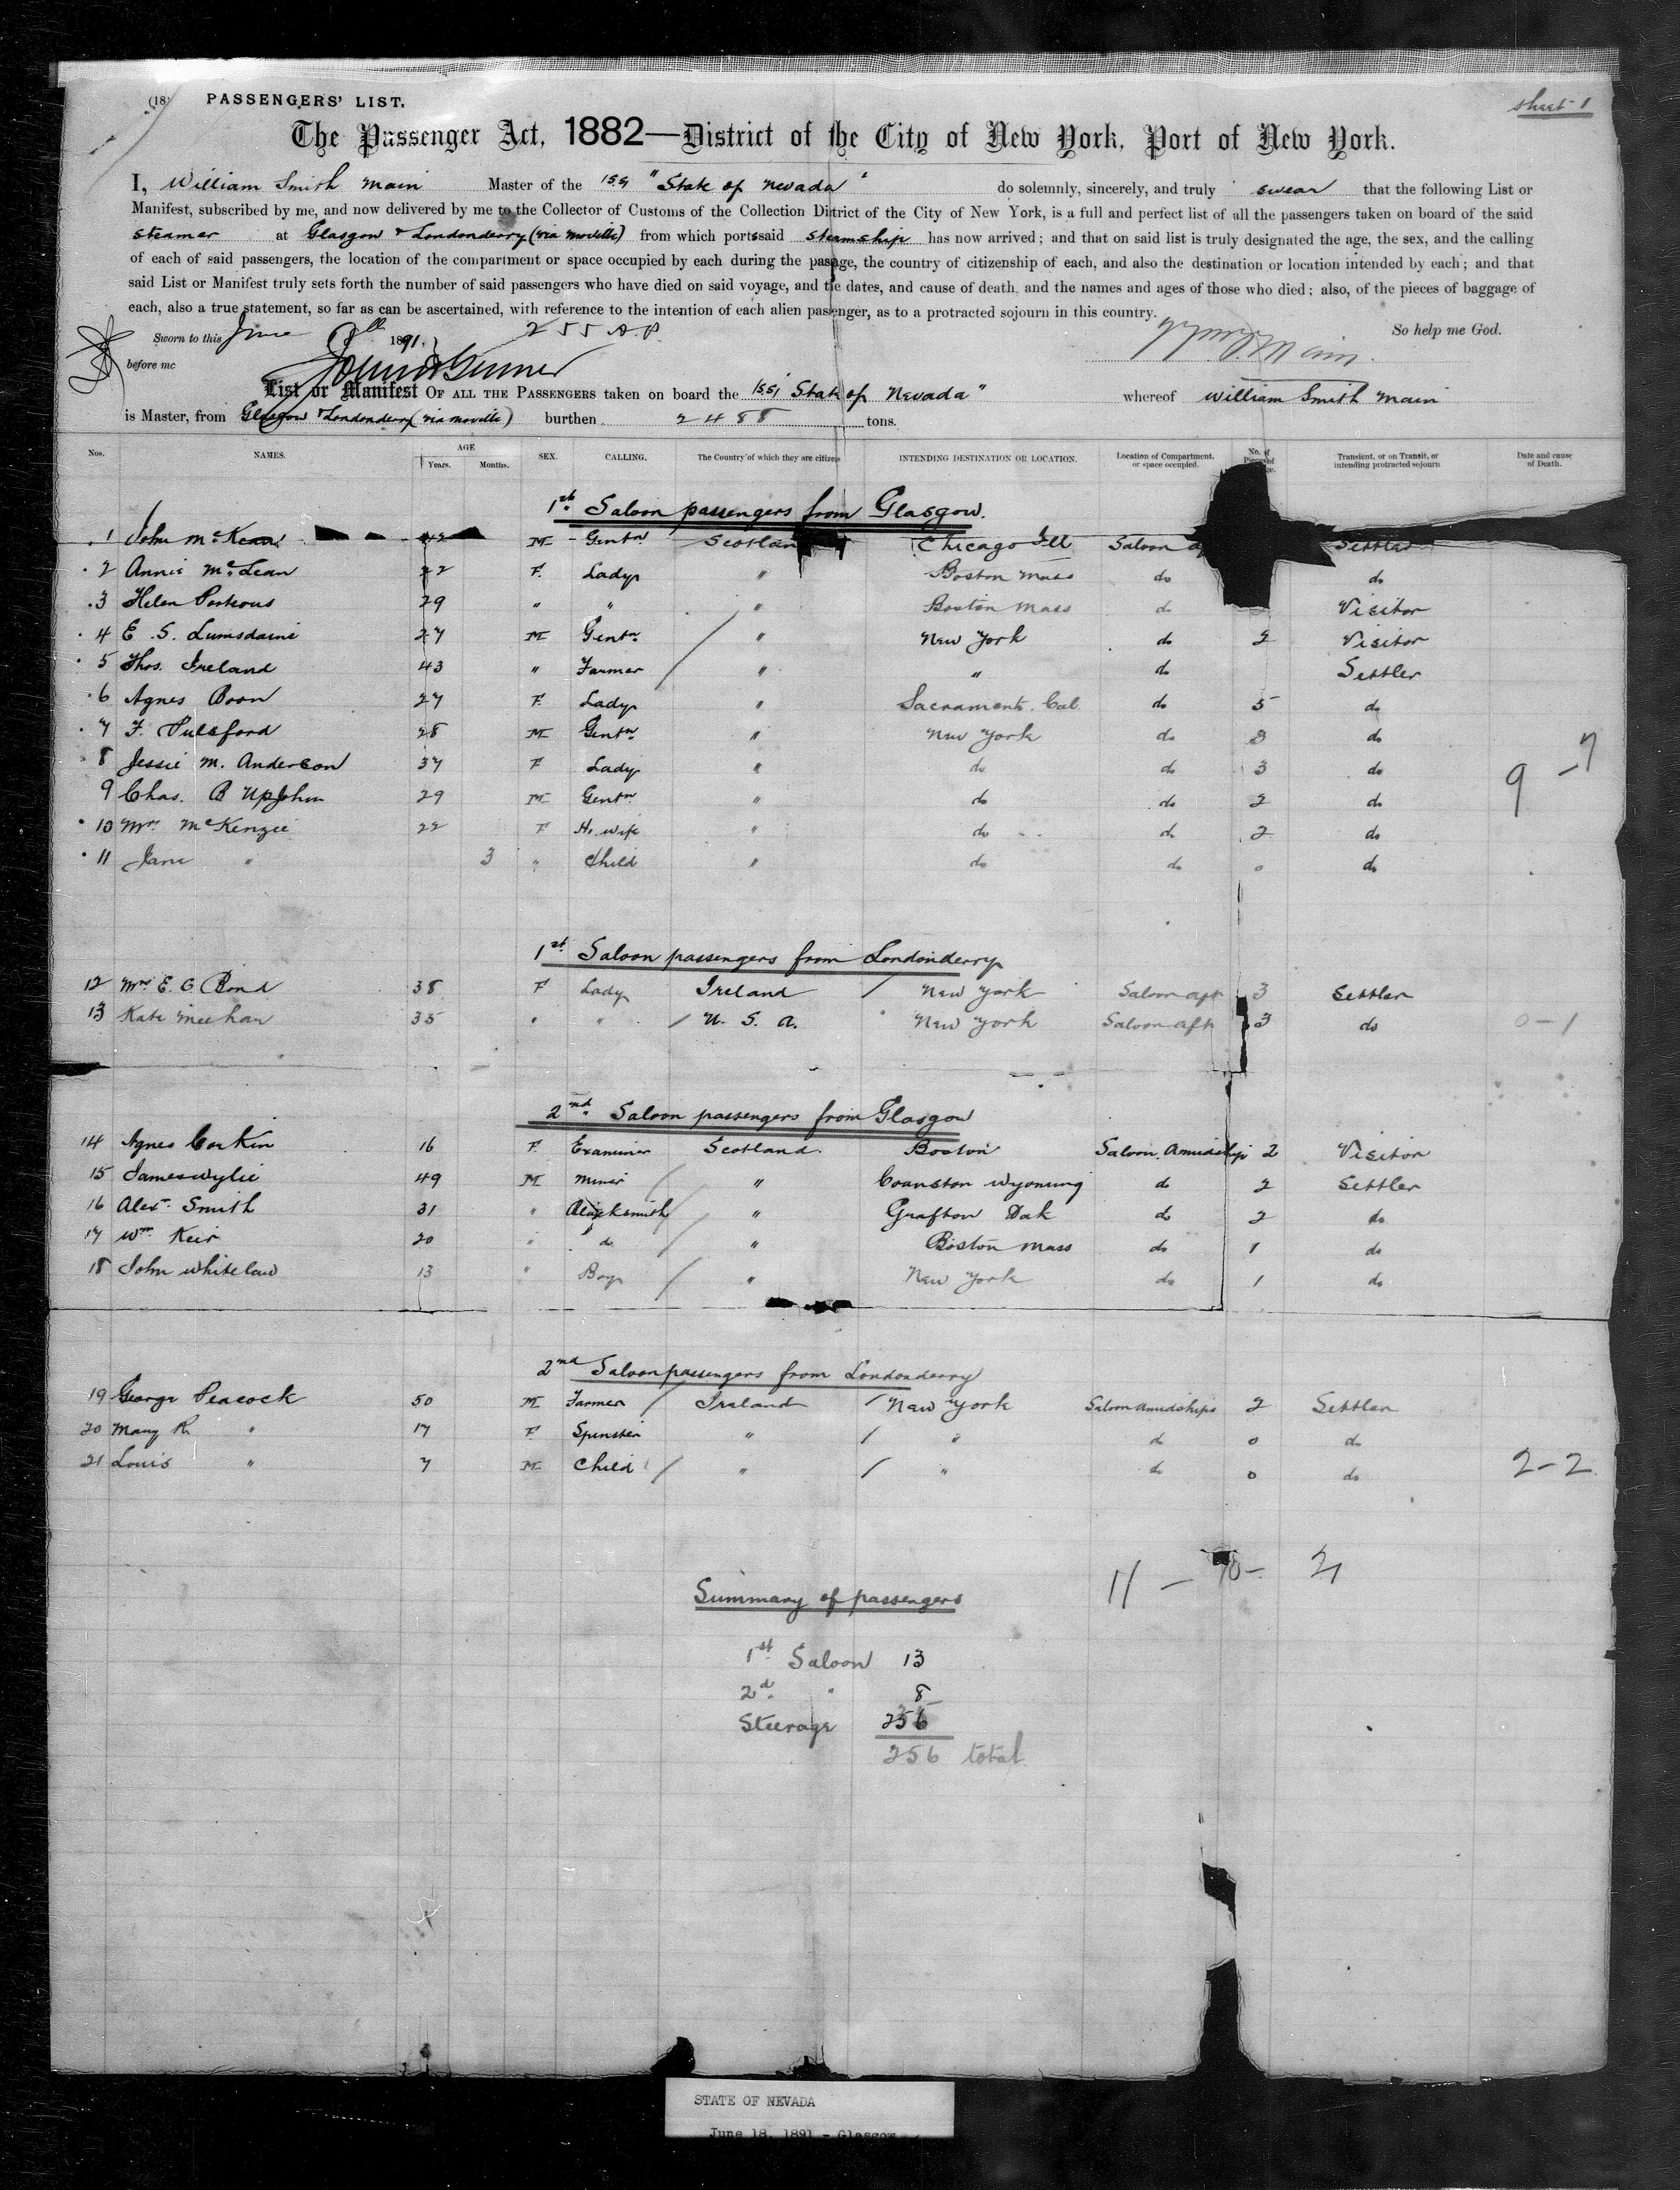 (18)
PASSENGERS' LIST.
sheet 1
The Passenger Act, 1882—District of the City of New York, Port of New York.
I, William Smith Main Master of the "State of Nevada" do solemnly, sincerely, and truly swear that the following List or
Manifest, subscribed by me, and now delivered by me to the Collector of Customs of the Collection District of the City of New York, is a full and perfect list of all the passengers taken on board of the said
Steamer at Glasgow & Londonderry (via Moville) from which ports said steamship has now arrived; and that on said list is truly designated the age, the sex, and the calling
of each of said passengers, the location of the compartment or space occupied by each during the passage, the country of citizenship of each, and also the destination or location intended by each; and that
said List or Manifest truly sets forth the number of said passengers who have died on said voyage, and the dates, and cause of death, and the names and ages of those who died; also, of the pieces of baggage of
each, also a true statement, so far as can be ascertained, with reference to the intention of each alien passenger, as to a protracted sojourn in this country.
Sworn to this June 1891. 255 A.P. Main So help me God.
before me
List or Manifest OF ALL THE PASSENGERS taken on board the State of Nevada" whereof William Smith Main
is Master, from Glasgow & Londonderry (via Moville) burthen 2488 tons.
Nos. NAMES. AGE Years. Months. SEX. CALLING. The Country of which they are citizens INTENDING DESTINATION OR LOCATION. Location of Compartment, or space occupied. No. of Pieces of Transient, or on Transit, or intending protracted sojourn Date and cause of Death.
1st Saloon passengers from Glasgow.
1 John McKean 42 M Gentn Scotland Chicago Ill Saloon Settler
2 Annie McLean 22 F. Lady " Boston Mass do do
3 Helen Porteous 29 " " " Boston Mass do Visitor
4 E. S. Lumsdaine 27 M Gentn " New York do 2 Visitor
5 Thos. Ireland 43 " Farmer " " do Settler
6 Agnes Boon 27 F. Lady " Sacramento. Cal. do 5 do
7 F. Pulsford 28 M Gentn " New York do 3 do
8 Jessie M. Anderson 37 F Lady " do do 3 do
9 Chas. B Upjohn 29 M Gentn " do do 2 do
9 – 7
10 Mrs McKenzie 22 F H. wife " do do 2 do
11 Jane " 3 " Child " do do 0 do
1st Saloon passengers from Londonderry
12 Mrs E. G Bond 38 F Lady Ireland New York Saloon aft 3 Settler
13 Kate Meehan 35 " " U. S. A. New York Saloon aft 3 do 0 – 1
2nd Saloon passengers from Glasgow
14 Agnes Corkin 16 F. Examiner Scotland. Boston Saloon. Amidship 2 Visitor
15 James Wylie 49 M Miner " Cranston Wyoming do 2 Settler
16 Alex. Smith 31 " Blacksmith " Grafton Dak do 2 do
17 Wm. Keir 20 " do " Boston Mass do 1 do
18 John Whitelaw 13 " Boy " New York do 1 do
2nd Saloon passengers from Londonderry
19 George Peacock 50 M Farmer Ireland New York Saloon amidships 2 Settler
20 Mary R. " 17 F. Spinster " " do 0 do
21 Louis " 7 M Child " " do 0 do 2 – 2
11 – 10 – 21
Summary of passengers
1st Saloon 13
2d " 8
Steerage 256
256 total
STATE OF NEVADA
June 18, 1891 - Glasgow